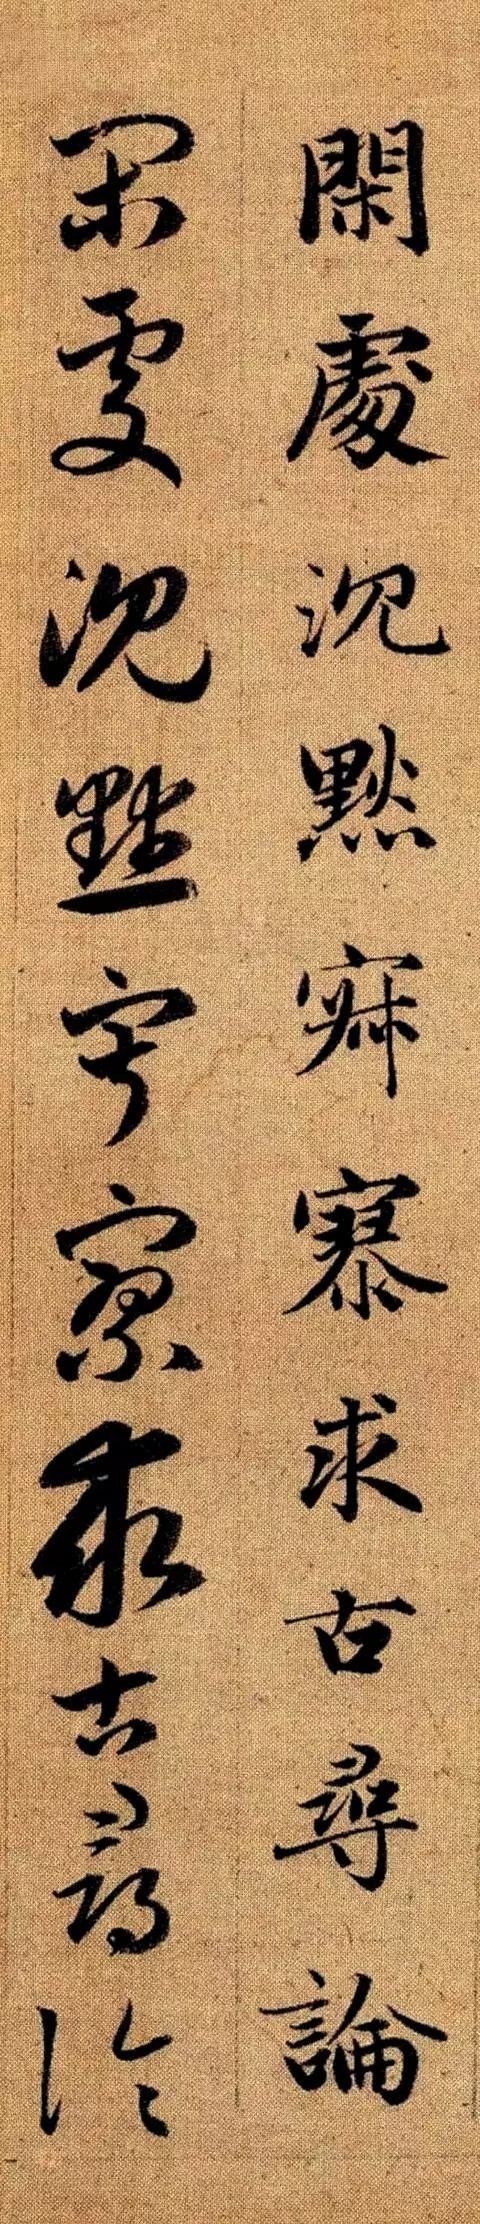 閑處沉默寂寥求古尋論
閑處沉默寂寥求古尋論